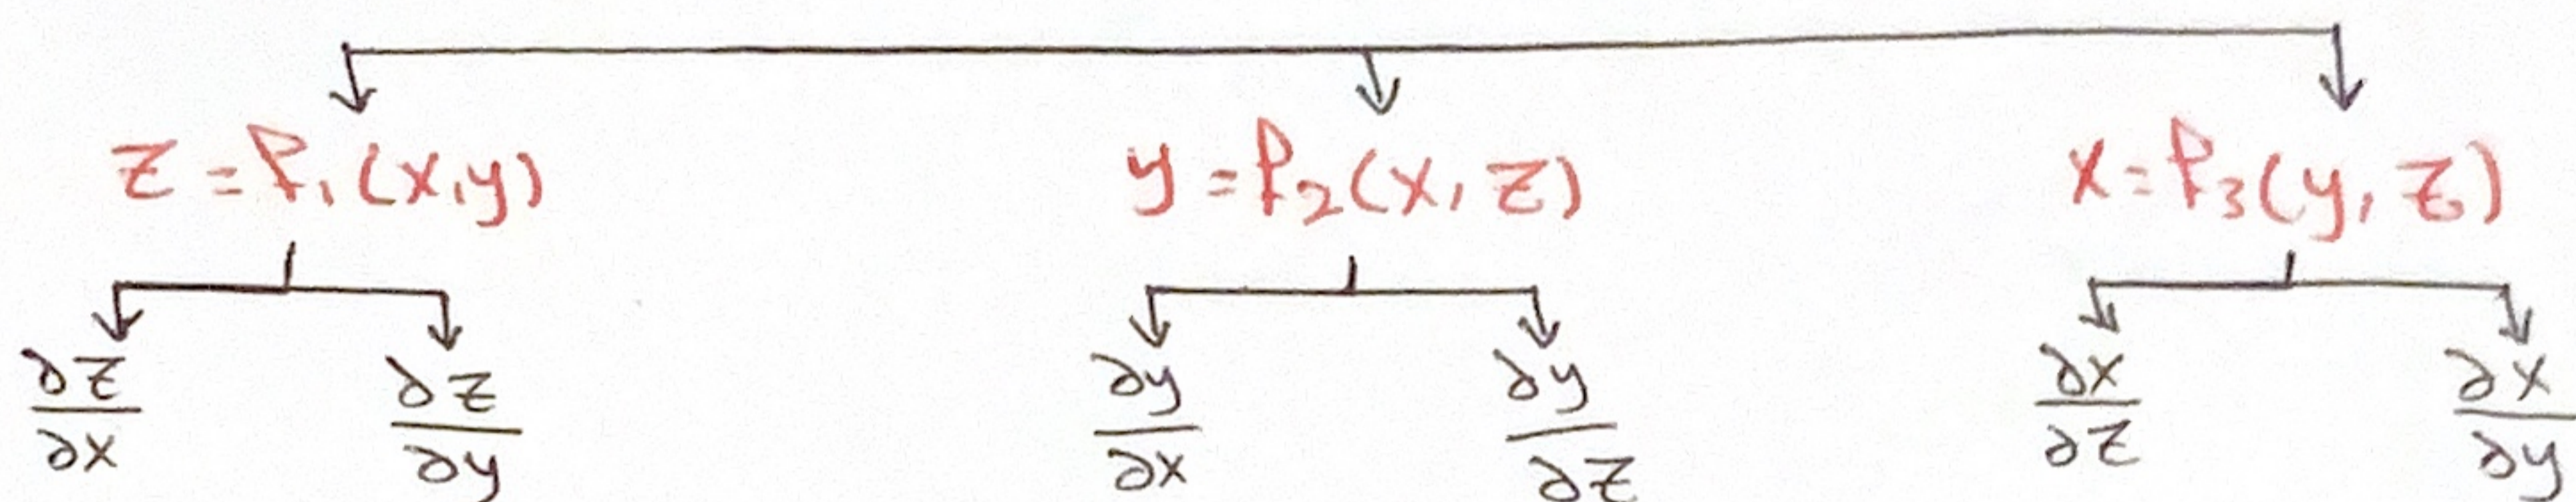 z = f₁(x,y) y = f₂(x, z) x = f₃(y, z)
∂z/∂x ∂z/∂y ∂y/∂x ∂y/∂z ∂x/∂z ∂x/∂y